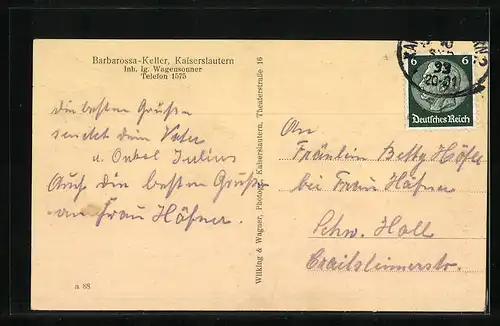 Barbarossa-Keller, Kaiserslautern
Inh. Ig. Wagensonner
Telefon 1575
die besten Grüße
sendet dein Vater
u. Onkel Julius
Auch die besten Grüße
an Frau Häfner.
a 88
Wilking & Wagner, Photogr., Kaiserslautern, Theaterstraße 16
33
20-21
6 6
Deutsches Reich
An
Fräulein Betty
bei Frau Häfner
Schw. Hall
Crailsheimerstr.